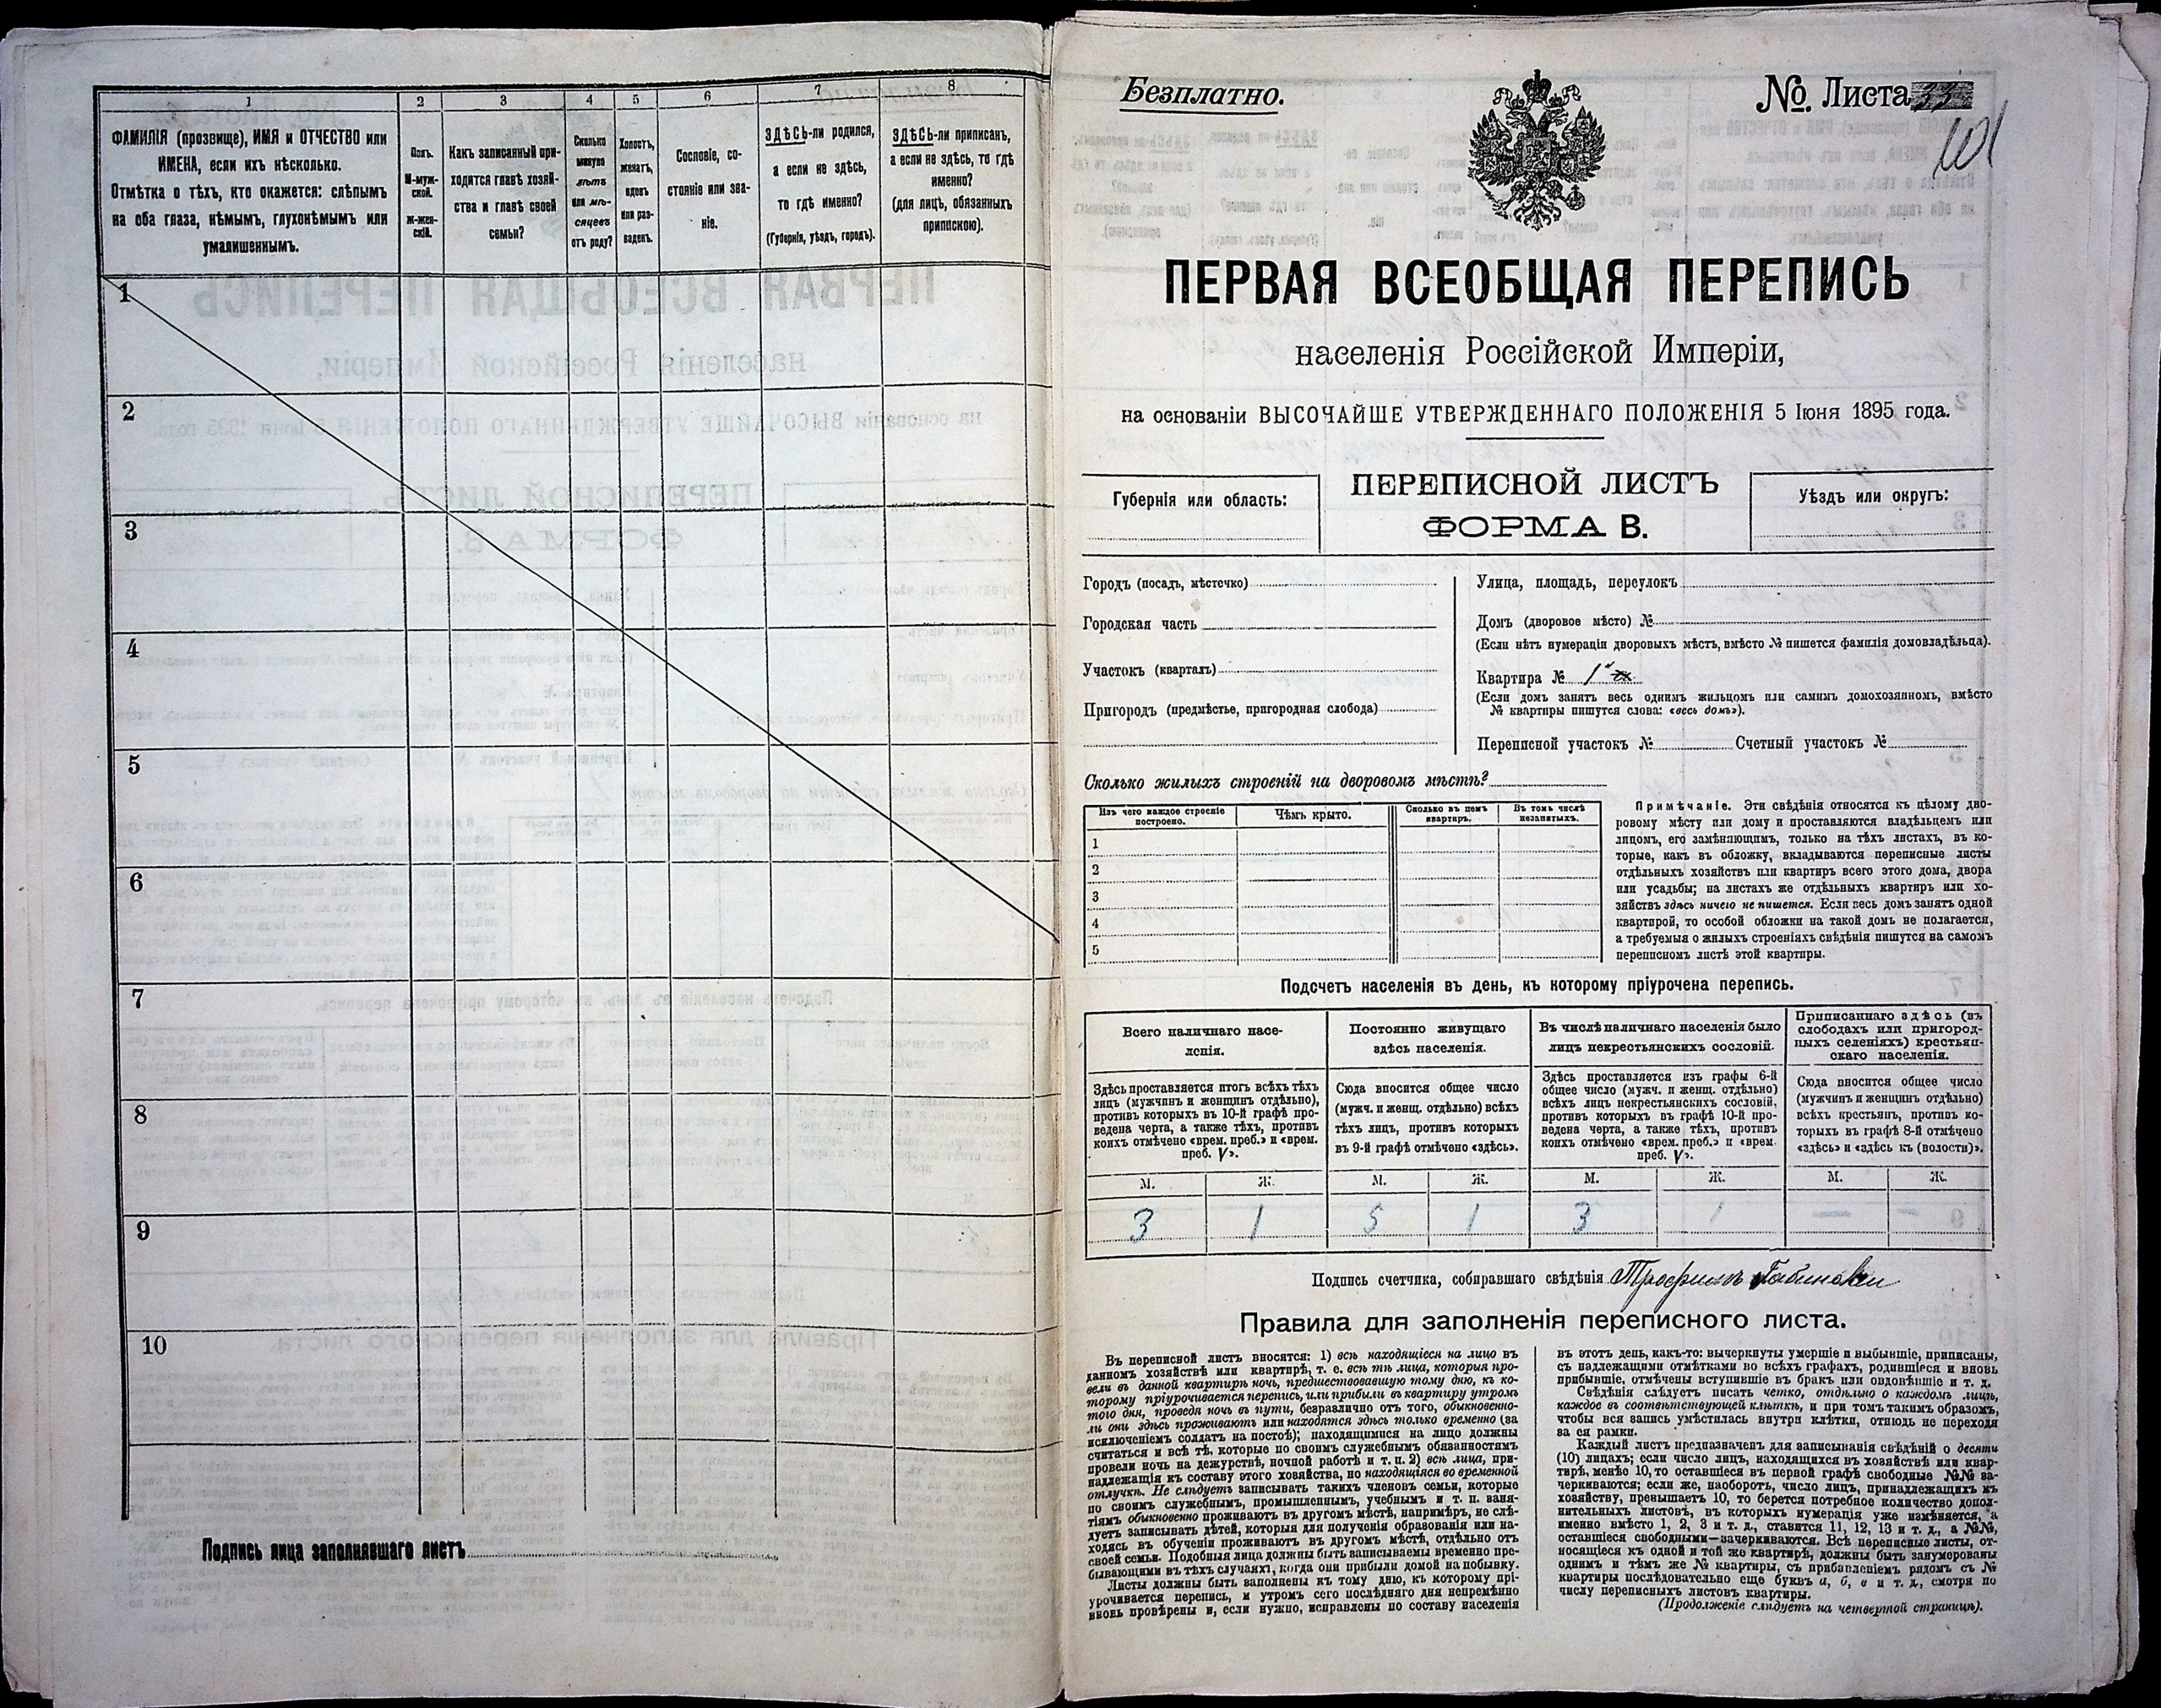 1
2
3
4
5
6
7
8
ФАМИЛІЯ (прозвище), ИМЯ и ОТЧЕСТВО или
ИМЕНА, если ихъ нѣсколько.
Отмѣтка о тѣхъ, кто окажется: слѣпымъ
на оба глаза, нѣмымъ, глухонѣмымъ или
умалишеннымъ.
Полъ.
М-муж-
ской.
Ж-жен-
скій.
Какъ записанный при-
ходится главѣ хозяй-
ства и главѣ своей
семьи?
Сколько
минуло
лѣтъ
или мѣ-
сяцевъ
отъ роду?
Холостъ,
женатъ,
вдовъ
или раз-
веденъ.
Сословіе, со-
стояніе или зва-
ніе.
ЗДѢСЬ-ли родился,
а если не здѣсь,
то гдѣ именно?
(Губернія, уѣздъ, городъ).
ЗДѢСЬ-ли приписан,
а если не здѣсь, то гдѣ
именно?
(для лицъ, обязанныхъ
припискою).
1
2
3
4
5
6
7
8
9
10
Подпись лица заполнявшаго листъ
Безплатно.
№ Листа 33
101
ПЕРВАЯ ВСЕОБЩАЯ ПЕРЕПИСЬ
населенія Россійской Имперіи,
на основаніи ВЫСОЧАЙШЕ УТВЕРЖДЕННАГО ПОЛОЖЕНІЯ 5 Іюня 1895 года.
Губернія или область:
ПЕРЕПИСНОЙ ЛИСТЪ
ФОРМА В.
Уѣздъ или округъ:
Городъ (посадъ, мѣстечко)
Городская часть
Участокъ (кварталъ)
Пригородъ (предмѣстье, пригородная слобода)
Улица, площадь, переулокъ
Домъ (дворовое мѣсто) №
(Если нѣтъ нумераціи дворовыхъ мѣстъ, вмѣсто № пишется фамилія домовладѣльца).
Квартира № 1
(Если домъ занятъ весь однимъ жильцомъ или самимъ домохозяиномъ, вмѣсто
№ квартиры пишутся слова: «весь домъ»).
Переписной участокъ № Счетный участокъ №
Сколько жилыхъ строеній на дворовомъ мѣстѣ?
Изъ чего каждое строеніе
построено.
Чѣмъ крыто.
Сколько въ немъ
квартиръ.
Въ томъ числѣ
незанятыхъ.
1
2
3
4
5
Примѣчаніе. Эти свѣдѣнія относятся къ цѣлому дво-
ровому мѣсту или дому и проставляются владѣльцемъ или
лицомъ, его замѣняющимъ, только на тѣхъ листахъ, въ ко-
торые, какъ въ обложку, вкладываются переписные листы
отдѣльныхъ хозяйствъ или квартиръ всего этого дома, двора
или усадьбы; на листахъ же отдѣльныхъ квартиръ или хо-
зяйствъ здѣсь ничего не пишется. Если весь домъ занятъ одной
квартирой, то особой обложки на такой домъ не полагается,
а требуемыя о жилыхъ строеніяхъ свѣдѣнія пишутся на самомъ
переписномъ листѣ этой квартиры.
Подсчетъ населенія въ день, къ которому пріурочена перепись.
Всего наличнаго насе-
ленія.
Здѣсь проставляется итогъ всѣхъ тѣхъ
лицъ (мужчинъ и женщинъ отдѣльно),
противъ которыхъ въ 10-й графѣ про-
ведена черта, а также тѣхъ, противъ
коихъ отмѣчено «врем. преб.» и «врем.
преб. V».
Постоянно живущаго
здѣсь населенія.
Сюда вносится общее число
(мужч. и женщ. отдѣльно) всѣхъ
тѣхъ лицъ, противъ которыхъ
въ 9-й графѣ отмѣчено «здѣсь».
Въ числѣ наличнаго населенія было
лицъ некрестьянскихъ сословій.
Здѣсь проставляется изъ графы 6-й
общее число (мужч. и женщ. отдѣльно)
всѣхъ лицъ некрестьянскихъ сословій,
противъ которыхъ въ графѣ 10-й про-
ведена черта, а также тѣхъ, противъ
коихъ отмѣчено «врем. преб.» и «врем.
преб. V».
Приписаннаго здѣсь (въ
слободахъ или пригород-
ныхъ селеніяхъ) крестьян-
скаго населенія.
Сюда вносится общее число
(мужчинъ и женщинъ отдѣльно)
всѣхъ крестьянъ, противъ ко-
торыхъ въ графѣ 8-й отмѣчено
«здѣсь» и «здѣсь къ (волости)».
М. Ж. М. Ж. М. Ж. М. Ж.
3 1 5 1 3 1 — —
Подпись счетчика, собиравшаго свѣдѣнія Трофимъ
Правила для заполненія переписного листа.
Въ переписной листъ вносятся: 1) всѣ находящіеся на лицо въ
данномъ хозяйствѣ или квартирѣ, т. е. всѣ тѣ лица, которыя про-
вели въ данной квартирѣ ночь, предшествовавшую тому дню, къ ко-
торому пріурочивается перепись, или прибыли въ квартиру утромъ
того дня, проведя ночь въ пути, безразлично отъ того, обыкновенно-
ли они здѣсь проживаютъ или находятся здѣсь только временно (за
исключеніемъ солдатъ на постоѣ); находящимися на лицо должны
считаться и всѣ тѣ, которые по своимъ служебнымъ обязанностямъ
провели ночь на дежурствѣ, ночной работѣ и т. п. 2) всѣ лица, при-
надлежащія къ составу этого хозяйства, но находящіяся во временной
отлучкѣ. Не слѣдуетъ записывать такихъ членовъ семьи, которые
по своимъ служебнымъ, промышленнымъ, учебнымъ и т. п. заня-
тіямъ обыкновенно проживаютъ въ другомъ мѣстѣ, напримѣръ, не слѣ-
дуетъ записывать дѣтей, которыя для полученія образованія или на-
ходясь въ обученіи проживаютъ въ другомъ мѣстѣ, отдѣльно отъ
своей семьи. Подобныя лица должны быть записываемы временно пре-
бывающими въ тѣхъ случаяхъ, когда они прибыли домой на побывку.
Листы должны быть заполнены къ тому дню, къ которому прі-
урочивается перепись, и утромъ сего послѣдняго дня непремѣнно
вновь провѣрены и, если нужно, исправлены по составу населенія
въ этотъ день, какъ-то: вычеркнуты умершіе и выбывшіе, приписаны,
съ надлежащими отмѣтками во всѣхъ графахъ, родившіеся и вновь
прибывшіе, отмѣчены вступившіе въ бракъ или овдовѣвшіе и т. д.
Свѣдѣнія слѣдуетъ писать четко, отдѣльно о каждомъ лицѣ,
каждое въ соотвѣтствующей клѣткѣ, и при томъ такимъ образомъ,
чтобы вся запись умѣстилась внутри клѣтки, отнюдь не переходя
за ея рамки.
Каждый листъ предназначенъ для записыванія свѣдѣній о десяти
(10) лицахъ; если число лицъ, находящихся въ хозяйствѣ или квар-
тирѣ, менѣе 10, то оставшіеся въ первой графѣ свободные №№ за-
черкиваются; если же, наоборотъ, число лицъ, принадлежащихъ къ
хозяйству, превышаетъ 10, то берется потребное количество допол-
нительныхъ листовъ, въ которыхъ нумерація уже измѣняется, а
именно вмѣсто 1, 2, 3 и т. д., ставится 11, 12, 13 и т. д., а №№,
оставшіеся свободными—зачеркиваются. Всѣ переписные листы, от-
носящіеся къ одной и той же квартирѣ, должны быть занумерованы
однимъ и тѣмъ же № квартиры, съ прибавленіемъ рядомъ съ №
квартиры послѣдовательно еще буквъ а, б, в и т. д., смотря по
числу переписныхъ листовъ квартиры.
(Продолженіе слѣдуетъ на четвертой страницѣ).